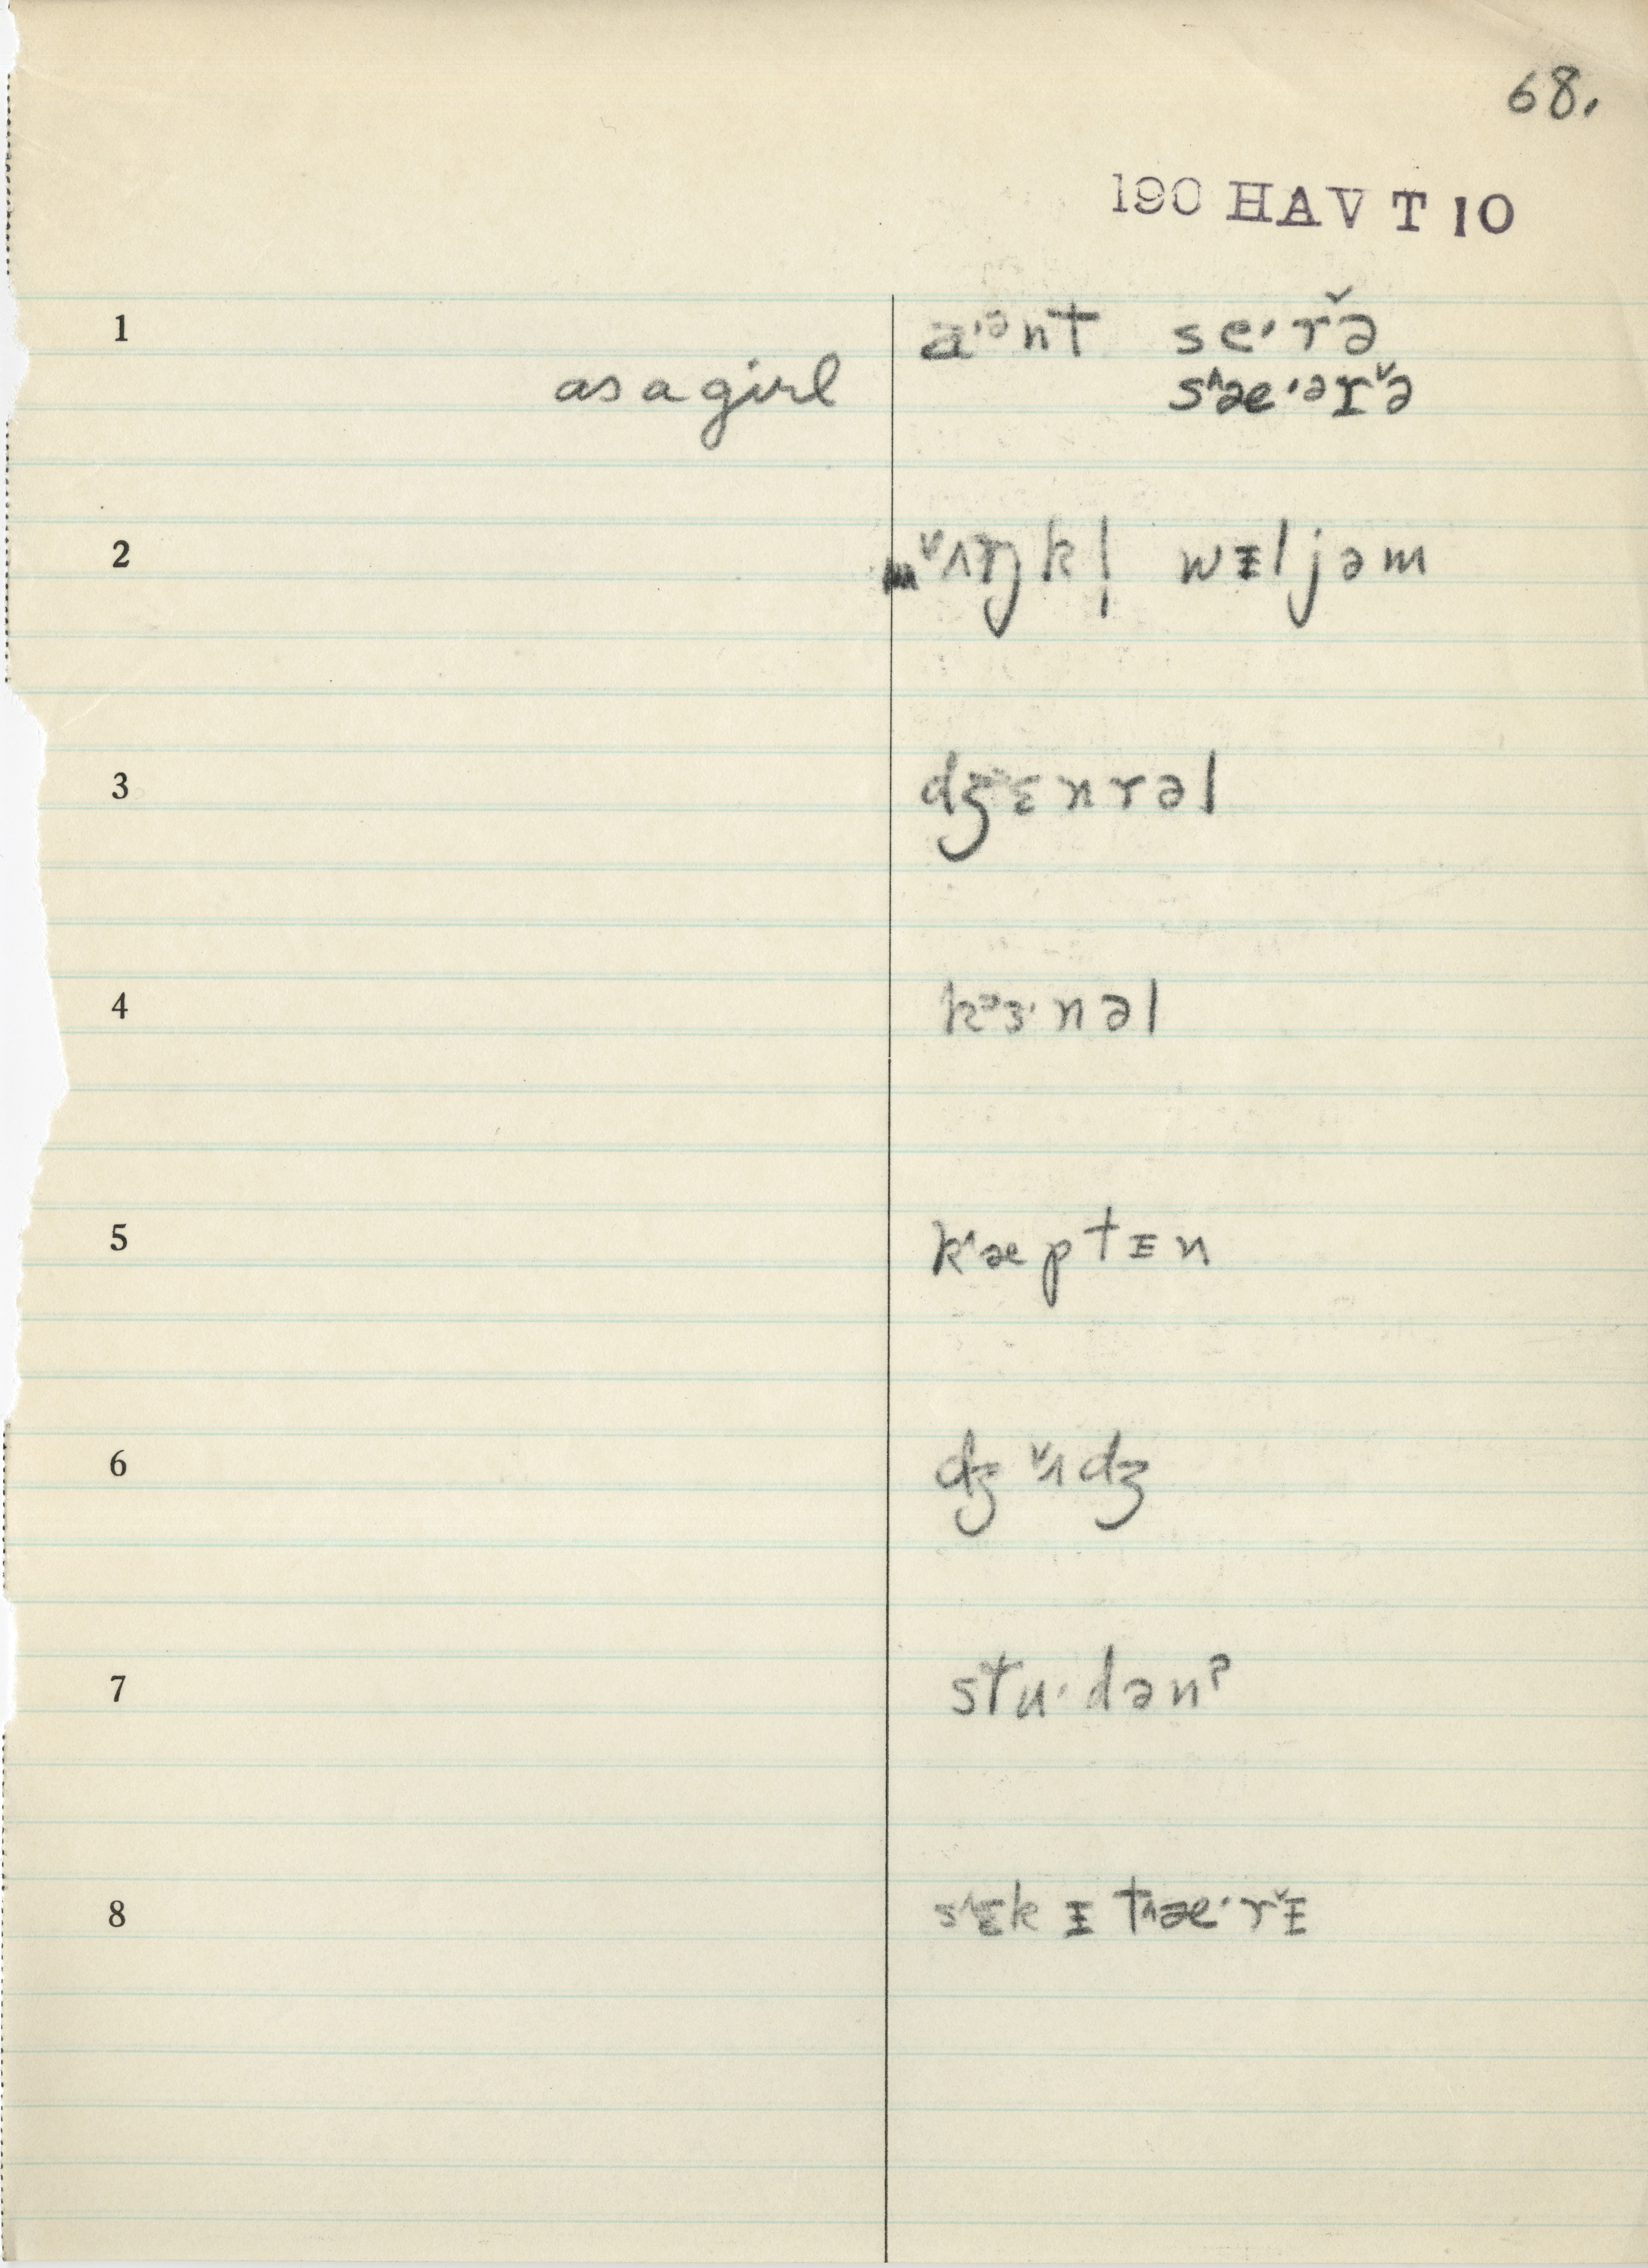 68.
190 HAV T 10
1 a·ᵊnt se·rə̌
as a girl s˄æ·ᵊɪ˅ə
2 ˅ʌŋkl̩ wɪljəm
3 dʒɛnrəl
4 kᵊɜ·nəl
5 k˂æptɪn
6 dʒ˅ʌdʒ
7 stu·dənˀ
8 s˄ɛkɪt˄æ·r˅ɪ